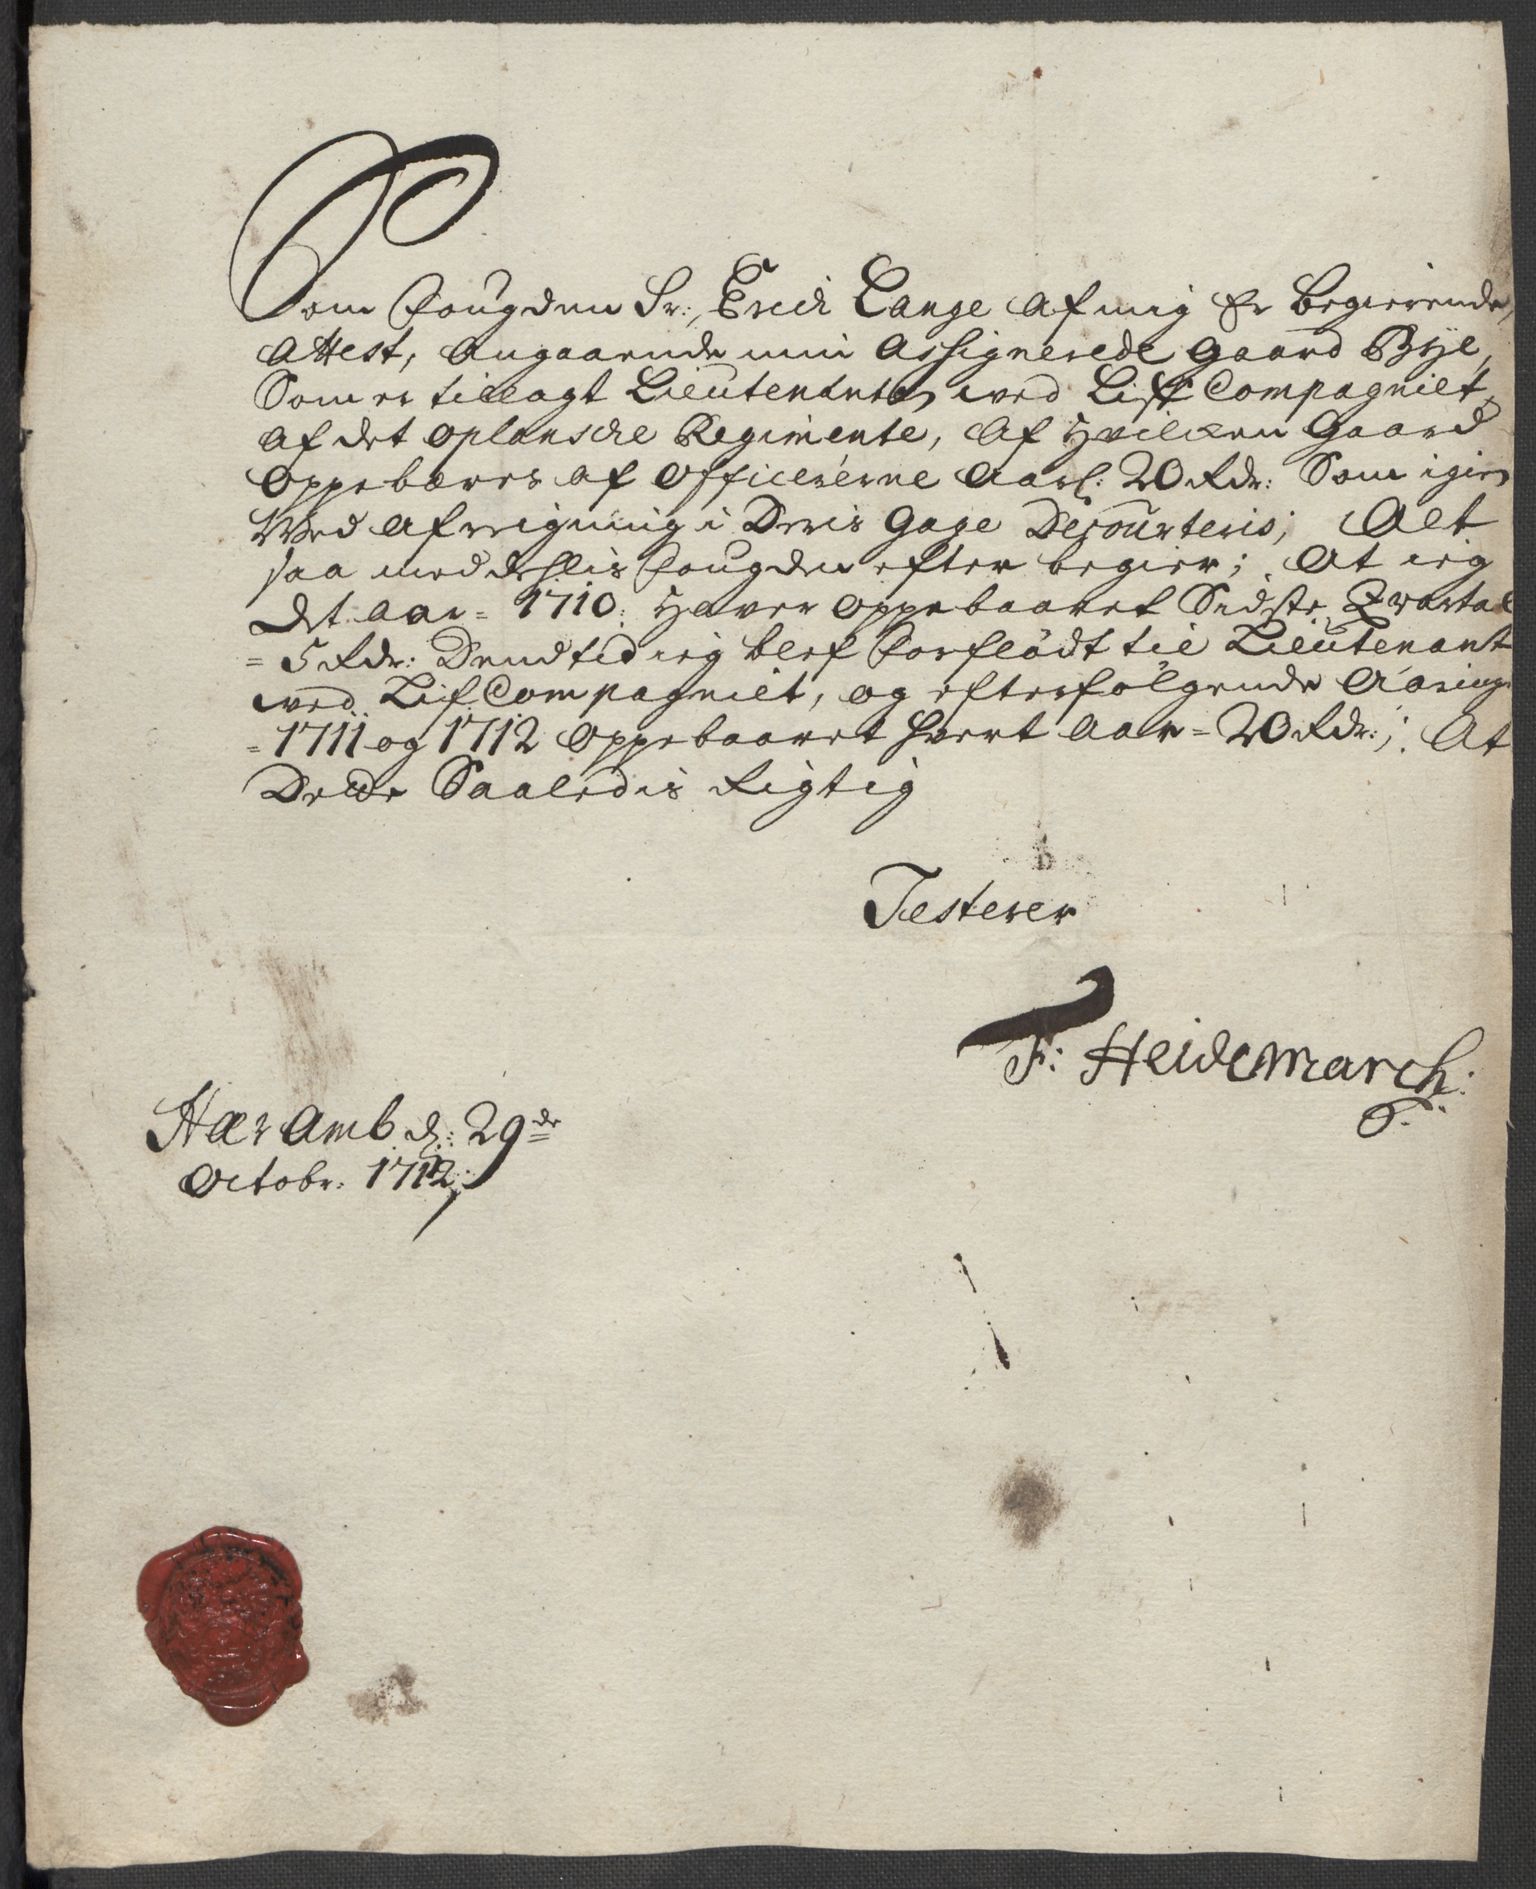 Som Fougden Sr: Erich Lange af mig Er Begierende
Attest, Angaaende min Assignerede Gaard Bye,
Som er tillagt Lieutenanten wed Liff Compagniet
af det oplansche Regimente, Af Hvilcken Gaard
Oppebæres af Officererne Aarl: 20 Rdr: Som igien
Wed Afreigning i Deris Gage Decourteris; Alt
saa meddehlis Fougden efter begier; At ieg
Det Aar = 1710: Haver oppebaaret Sidste Qvartal
= 5 Rdr: Dend tid ieg blef Forflödt til Lieutenant
wed Lif Compagniet, og efterfölgende Aaringer
= 1711 og 1712 Oppebaaret hvert Aar = 20 Rdr:; At
Dette Saaledis Rigtig
Testerer
F: Heidemarch:
Hær Amb d: 29de
Octobr: 1712;